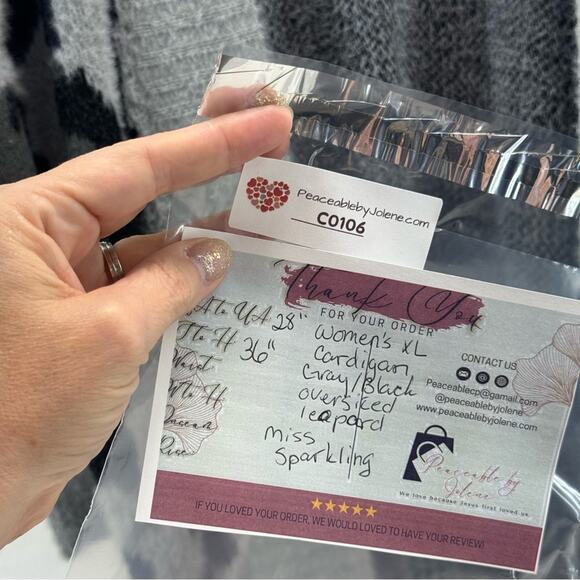 PeaceablebyJolene.com
C0106
Thank You
FOR YOUR ORDER
A to UA 28"
T to H 36"
Waist
W to H
Inseam
Rise
Women's XL
Cardigan
Gray/Black
oversized
leopard
miss
sparkling
CONTACT US
Peaceablecp@gamail.com
@peaceablebyjolene
www.peaceablebyjolene.com
Peaceable by
Jolene
We love because Jesus first loved us.
IF YOU LOVED YOUR ORDER, WE WOULD LOVED TO HAVE YOUR REVIEW!